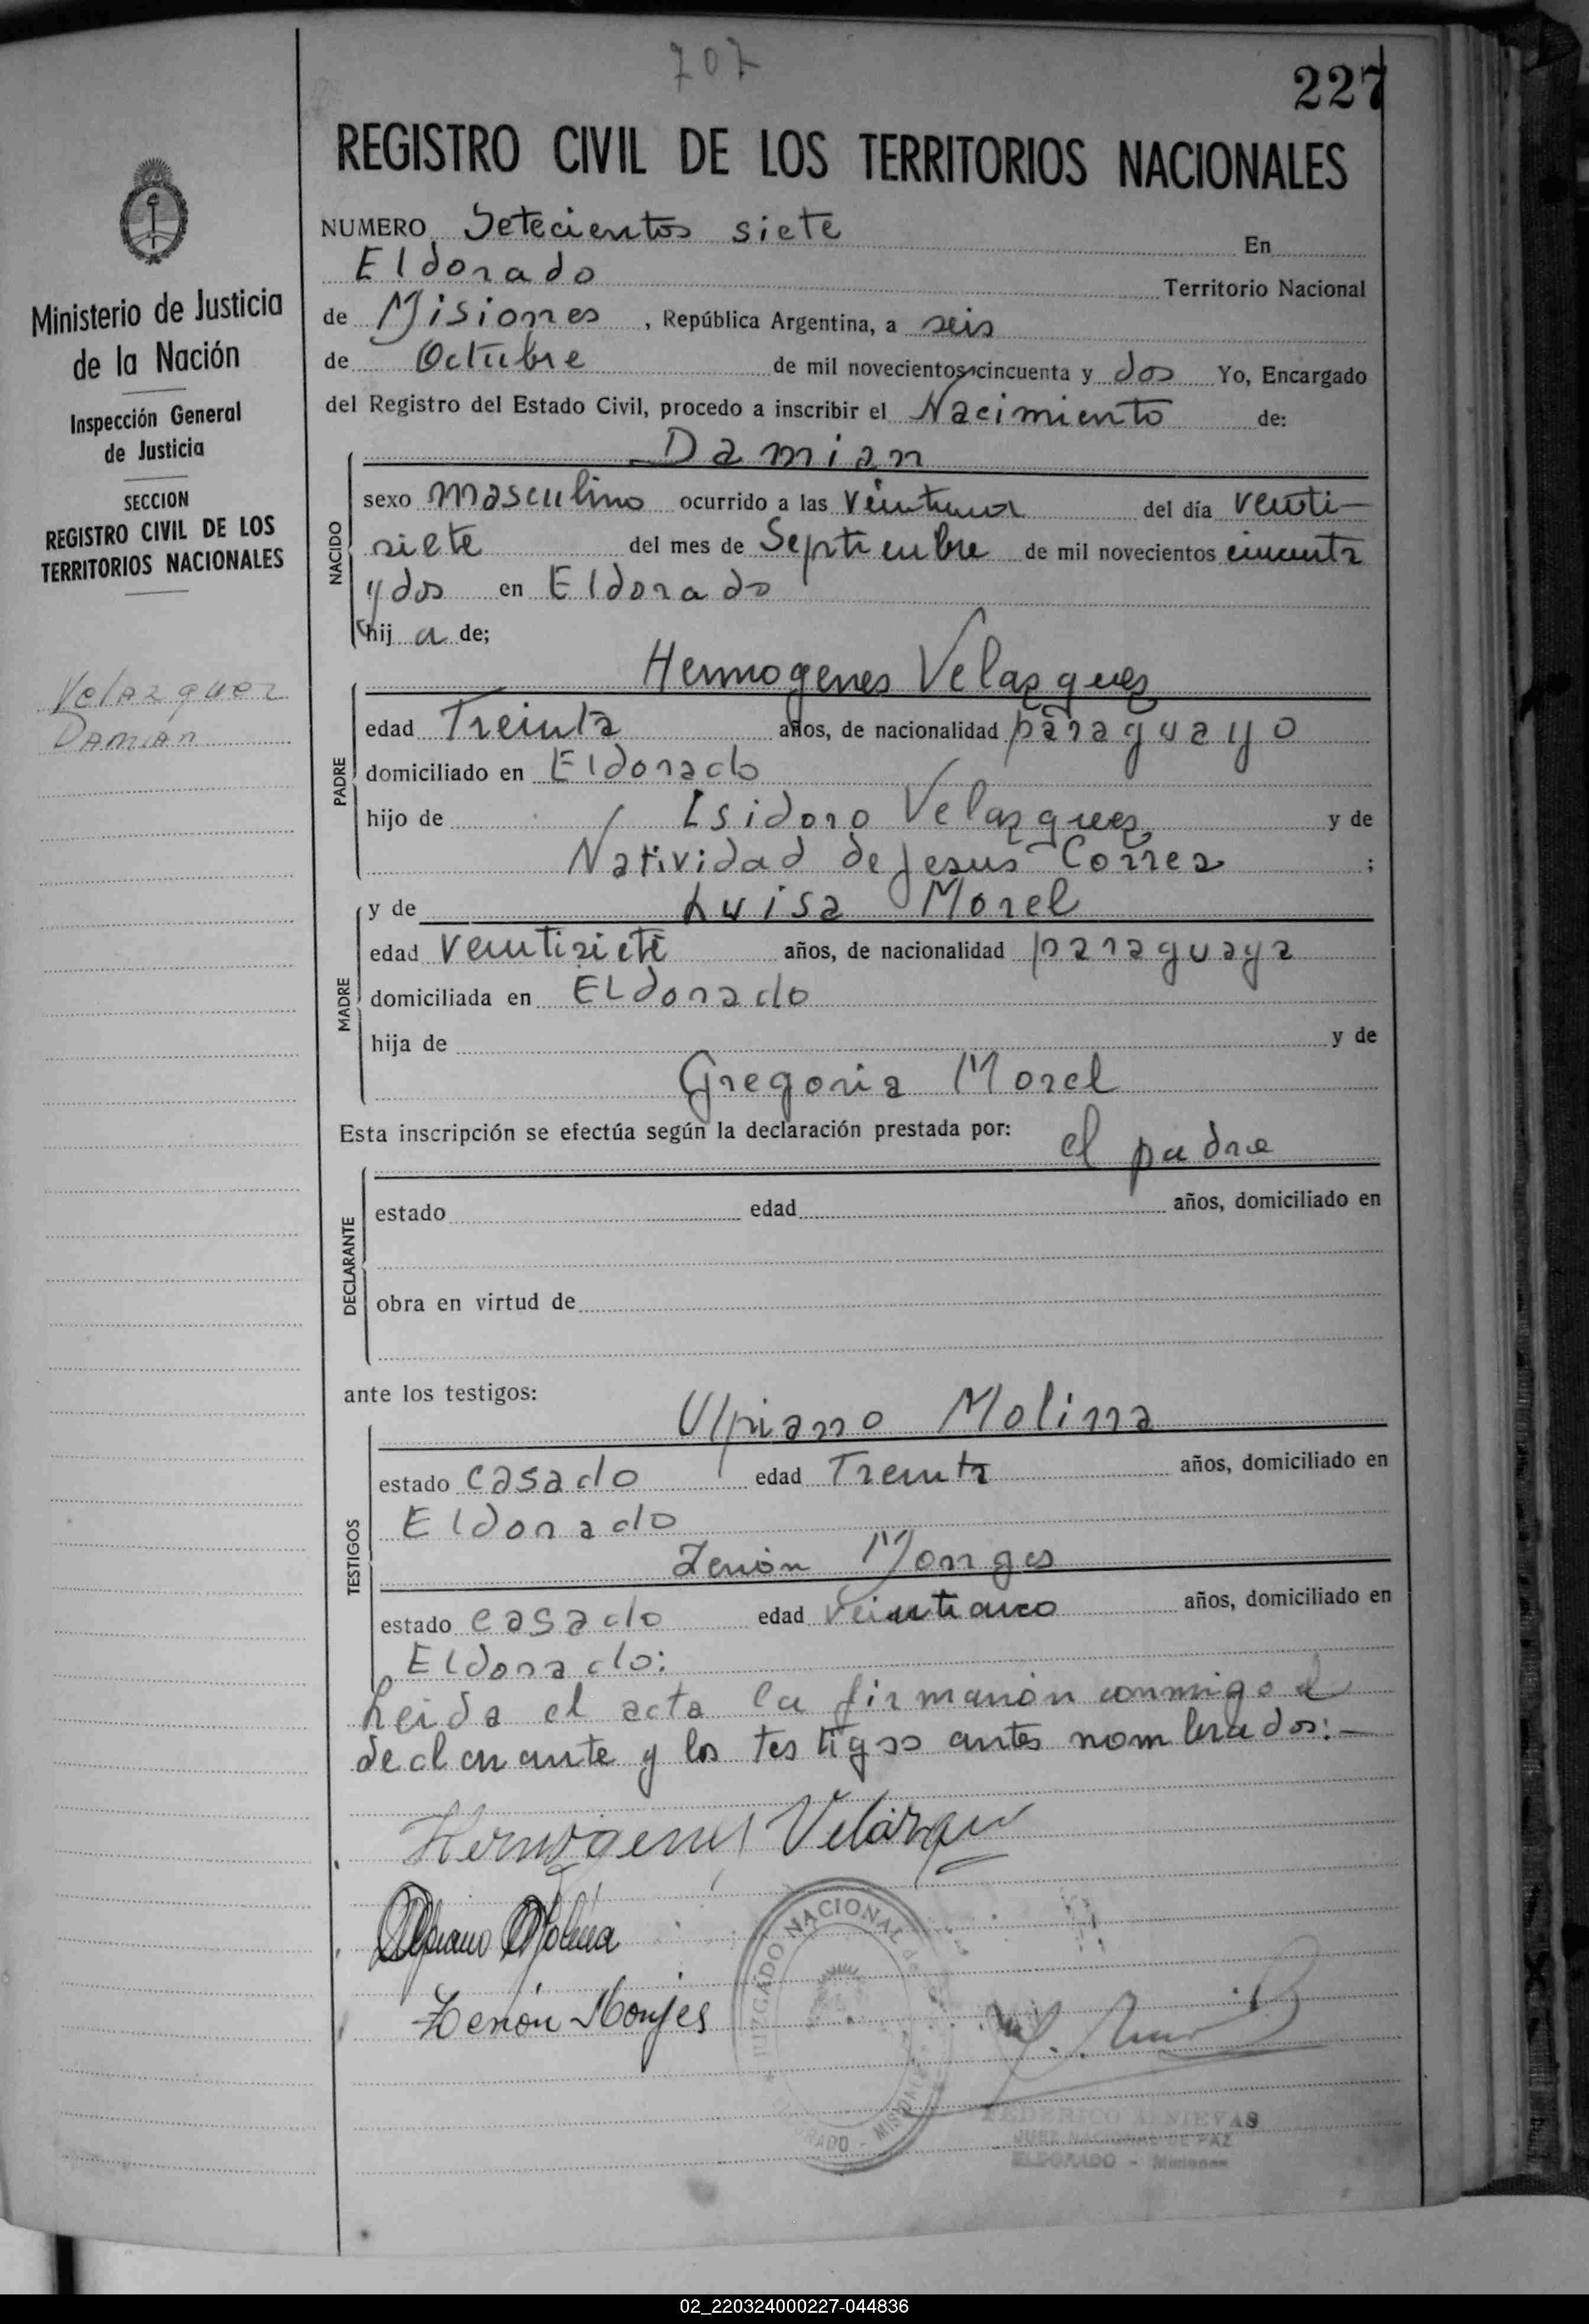 707
227
REGISTRO CIVIL DE LOS TERRITORIOS NACIONALES
Ministerio de Justicia
de la Nación
Inspección General
de Justicia
SECCION
REGISTRO CIVIL DE LOS
TERRITORIOS NACIONALES
Velazquez
Damian
NUMERO Setecientos siete En
Eldorado Territorio Nacional
de Misiones, República Argentina, a seis
de Octubre de mil novecientos cincuenta y dos Yo, Encargado
del Registro del Estado Civil, procedo a inscribir el Nacimiento de:
Damian
NACIDO
sexo masculino ocurrido a las veintiuna del día veinti-
siete del mes de Septiembre de mil novecientos cincuenta
y dos en Eldorado
hij a de;
Hermogenes Velazquez
PADRE
edad Treinta años, de nacionalidad paraguayo
domiciliado en Eldorado
hijo de Isidoro Velazquez y de
Natividad de Jesus Correa ;
y de Luisa Morel
MADRE
edad veintisiete años, de nacionalidad paraguaya
domiciliada en Eldorado
hija de y de
Gregoria Morel
Esta inscripción se efectúa según la declaración prestada por:
el padre
DECLARANTE
estado edad años, domiciliado en
obra en virtud de
ante los testigos:
Ulpiano Molina
TESTIGOS
estado casado edad Treinta años, domiciliado en
Eldorado
Zenón Monges
estado casado edad veinticinco años, domiciliado en
Eldorado:
Leida el acta la firmaron conmigo el
declarante y los testigos antes nombrados:-
Hermogenes Velázquez
Ulpiano Molina
Zenón Monjes
JUZGADO NACIONAL DE
MISIONES
FEDERICO A. NIEVAS
JUEZ NACIONAL DE PAZ
ELDORADO - Misiones
02_220324000227-044836